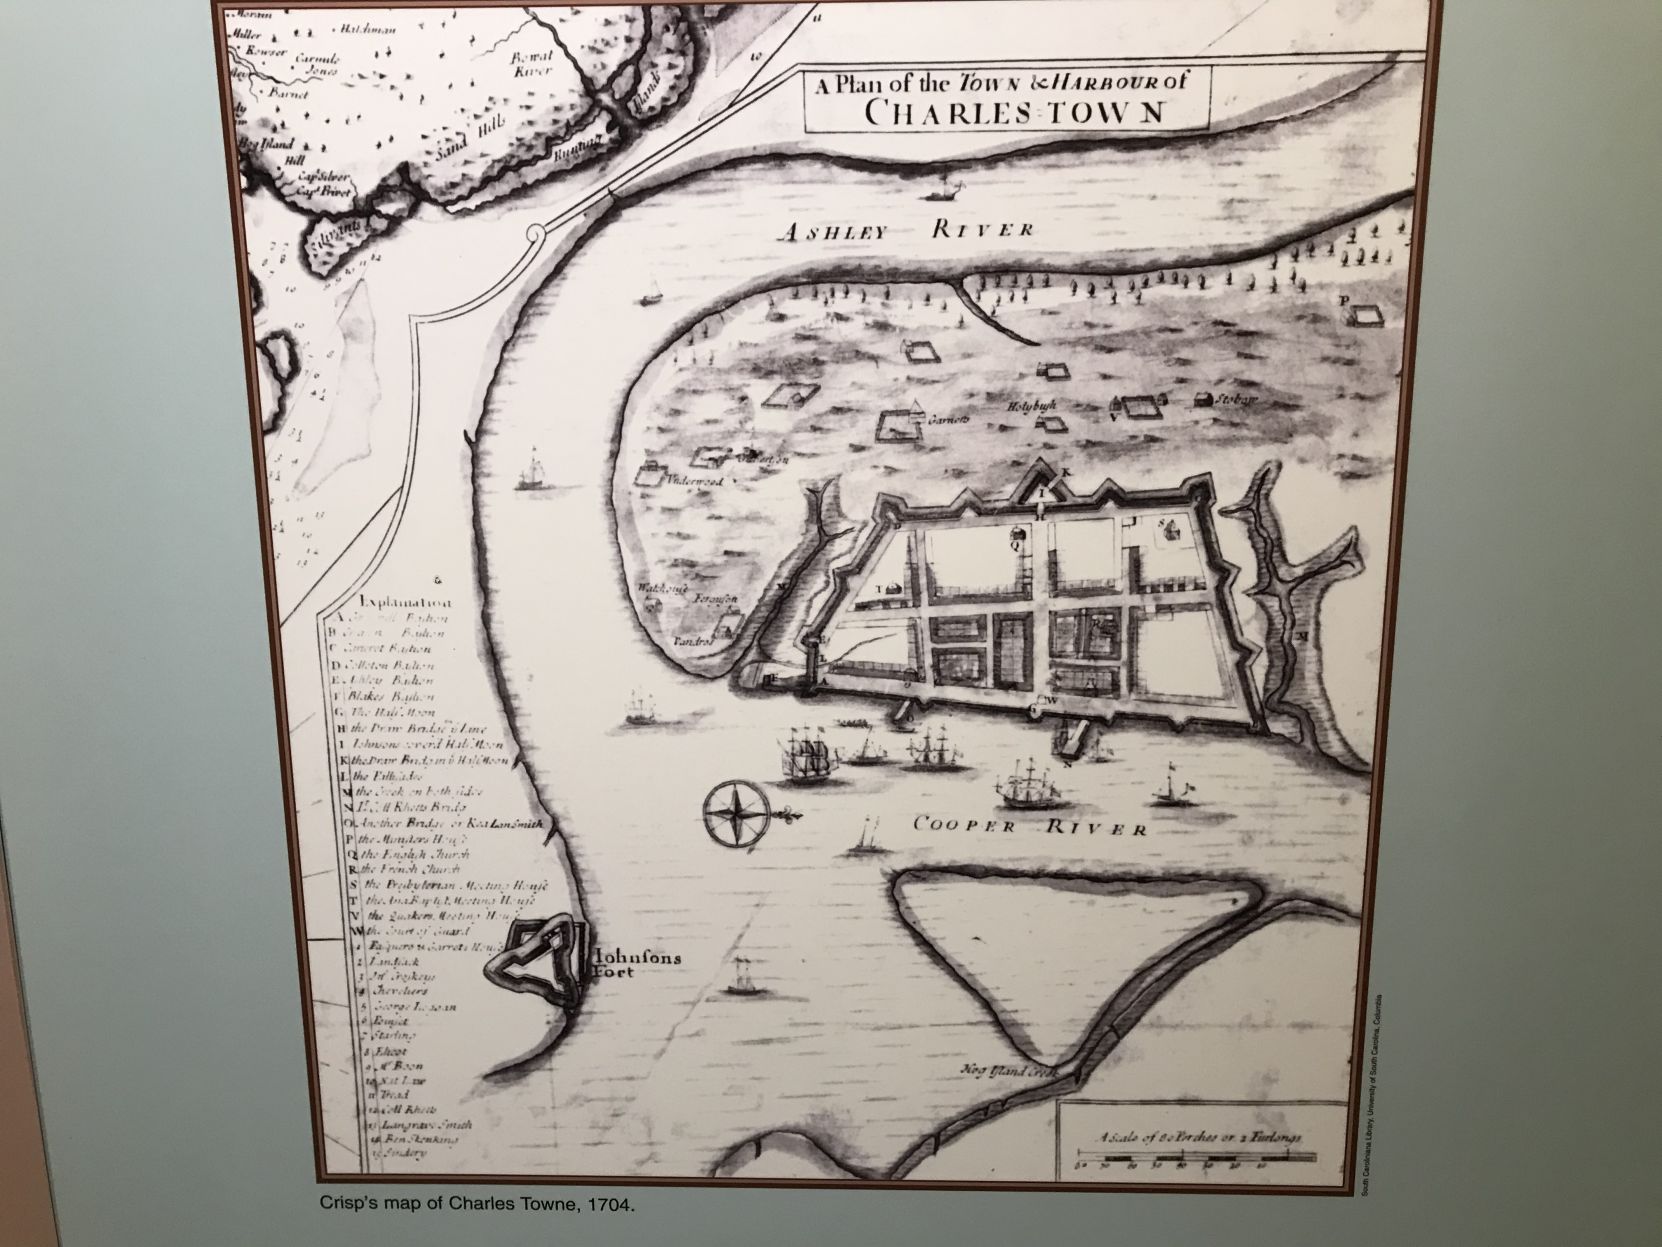 A Plan of the TOWN & HARBOUR of
CHARLES-TOWN
Morain
Miller
Hatchman
Rowser
Carmile
Jones
Barnet
Bowat
River
Sand Hills
Hunting
Islands
Hog Island
Hill
Cap Silver
Cap Privet
ASHLEY RIVER
P
Garnetts
Holybush
V
Underwood
K
I
H
Q
S
T
Watchouse
Ferguson
L
E
A
G
W
N
M
R
COOPER RIVER
Johnsons
Fort
Hog Island Creek
A Scale of 80 Perches or 2 Furlongs
Explaination
A Bastion
B Bastion
C Carteret Bastion
D Colleton Bastion
E Ashley Bastion
F Blakes Bastion
G The Half Moon
H the Draw Bridge in ye Line
I Johnsons coverd Half Moon
K the Draw Bridg in ye Half Moon
L the Pallisades
M the Creek on both sides
N Lt Coll Rhetts Bridg
O Another Bridge or Kea LanSmith
P the Minsters House
Q the English Church
R the French Church
S the Presbyterian Meeting House
T the Ana Baptist Meeting House
V the Quakers Meeting House
W the Court of Guard
1 Pasquero & Garrets House
2 Landsack
3
4 Cheveliers
5 George Logan
6
7 Starling
8 Elicot
9 Mr Boon
10 Nat Law
11
12 Coll Rhetts
13 Langrave Smith
14 Ben Skenking
15 Sindery
Crisp's map of Charles Towne, 1704.
South Caroliniana Library, University of South Carolina, Columbia